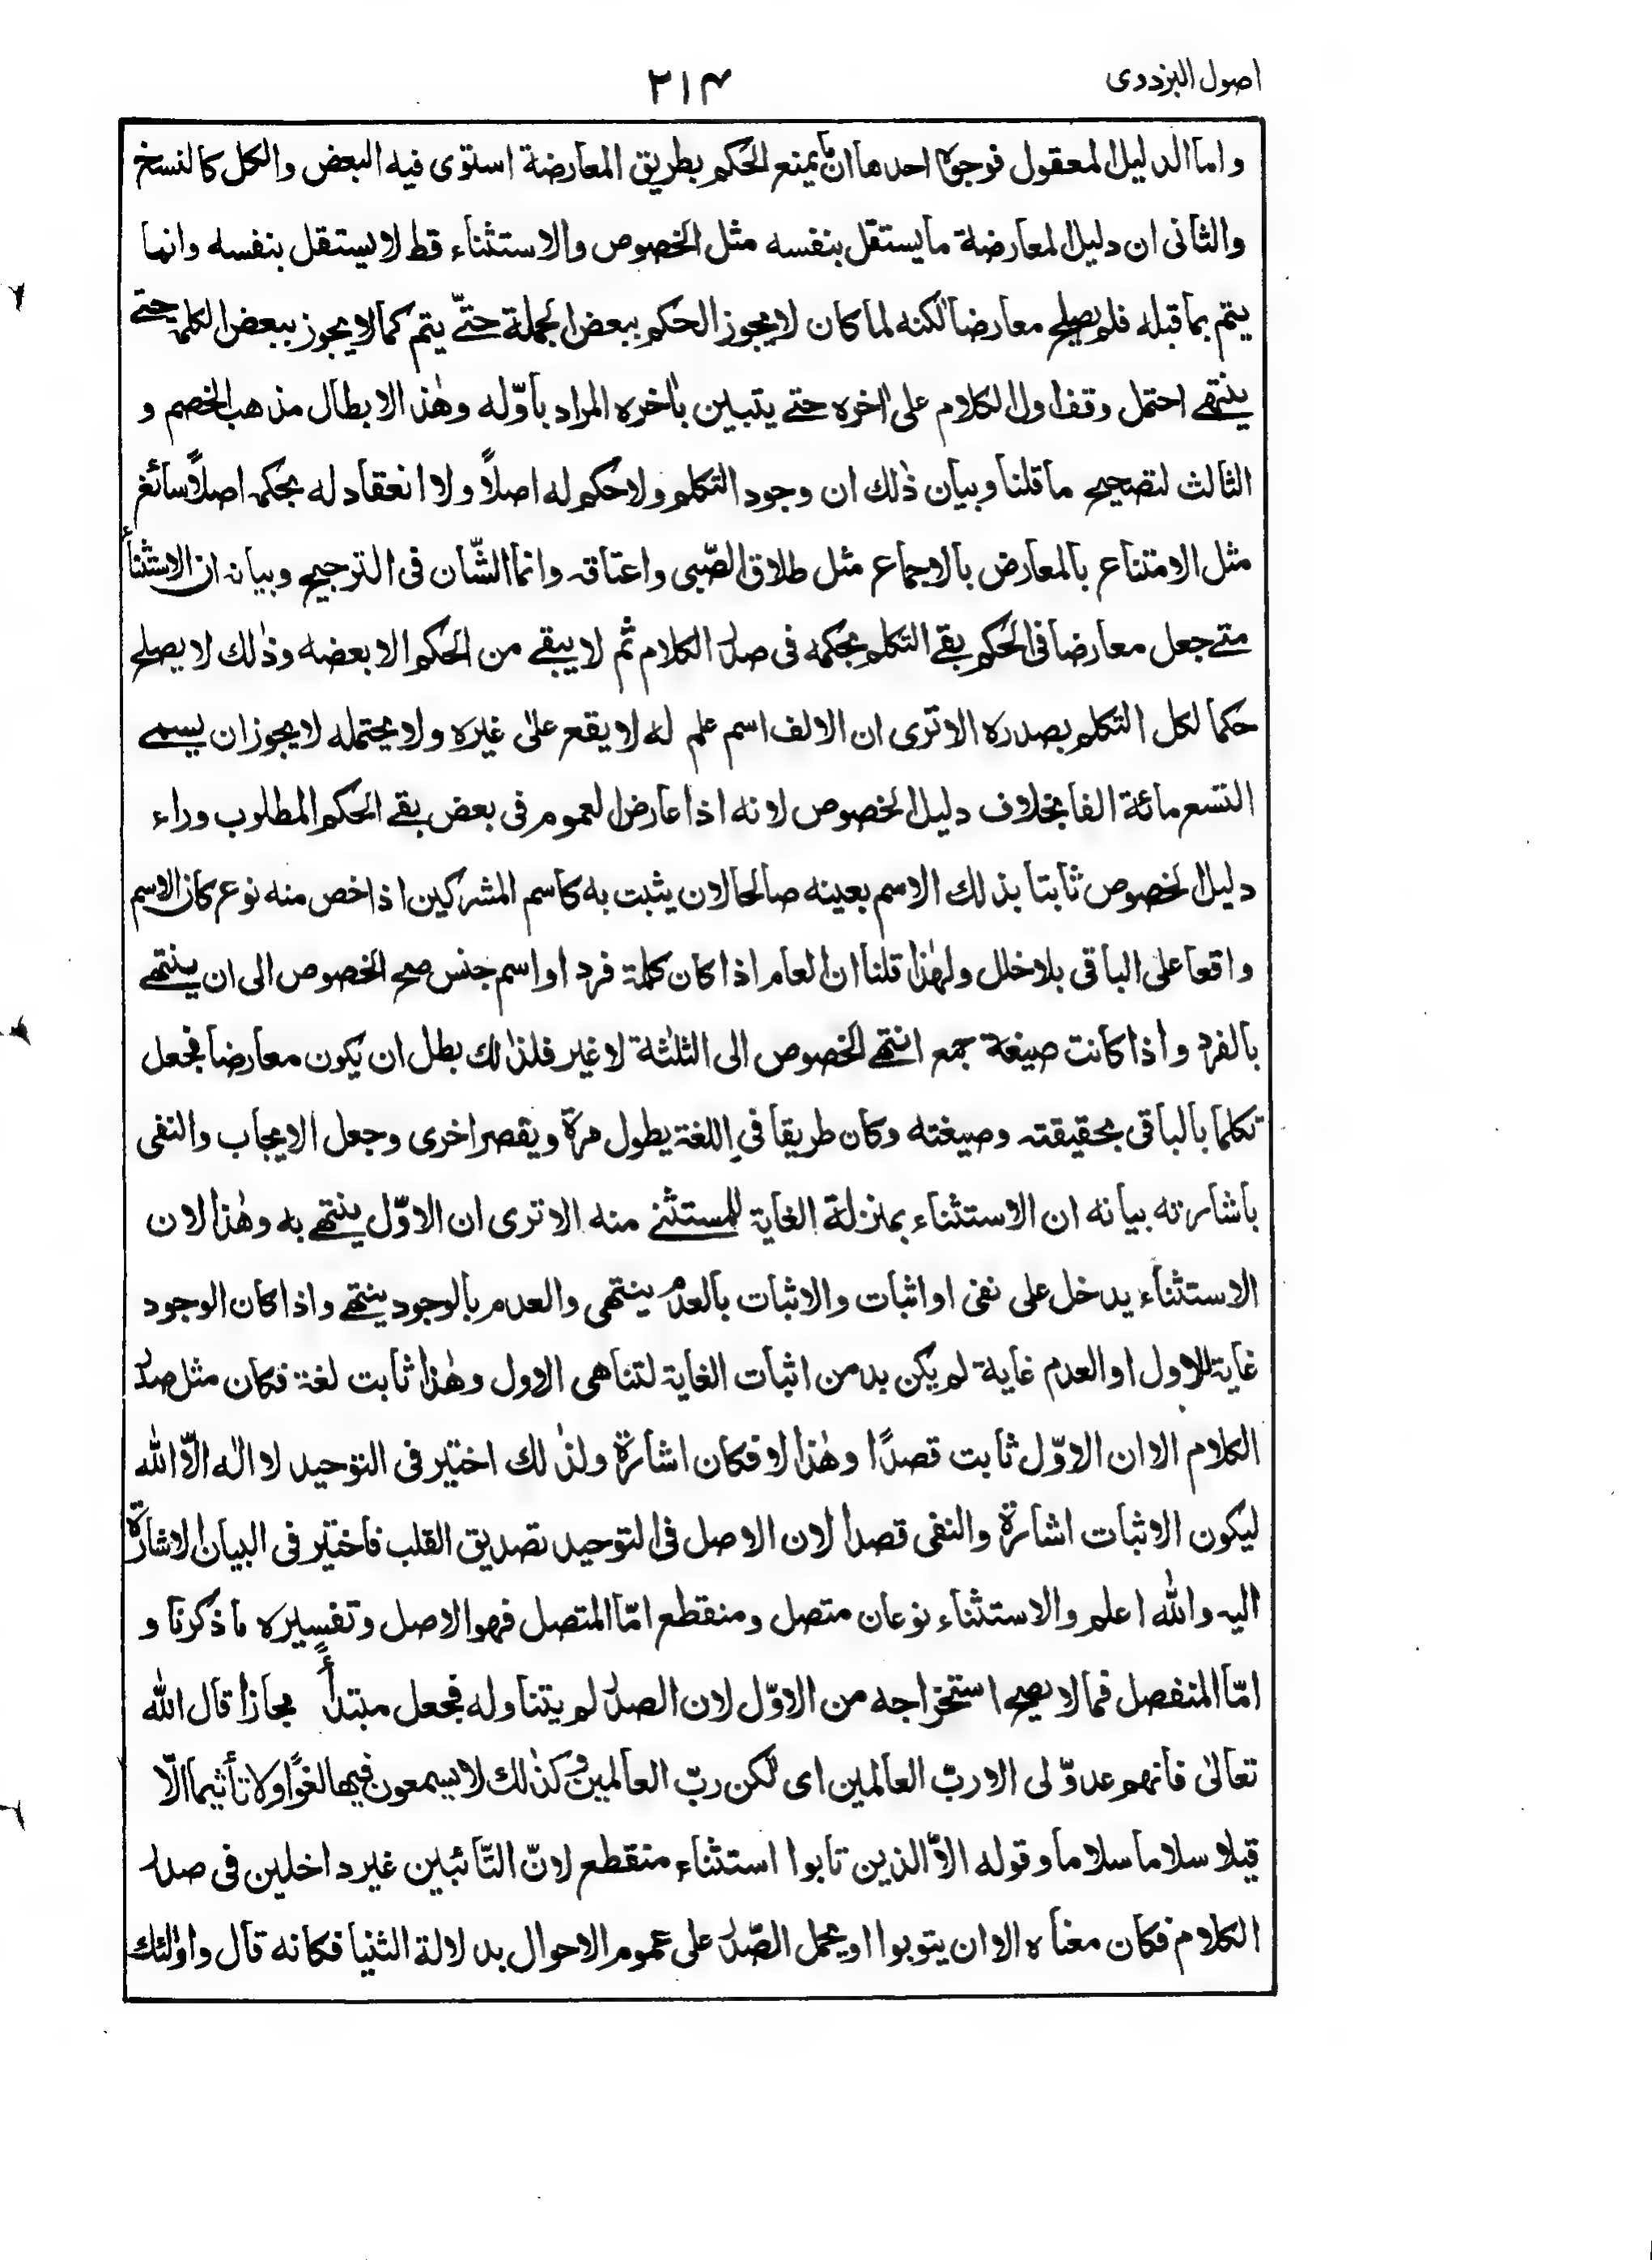 اصول البزدوی
۲۱۴
واما الدلیل المعقول فوجوہ احدھا ان ما یمنع الحکم بطریق المعارضة استوی فیه البعض والکل کالنسخ
والثانی ان دلیل المعارضة مایستقل بنفسه مثل الخصوص والاستثناء قط لا یستقل بنفسه وانما
یتم بما قبله فلم یصلح معارضا لکنه لما کان لا یجوز الحکم ببعض الجملة حتّے یتم کما لا یجوز ببعض الکلمة حتے
ینتھے احتمل وقف اول الکلام علی اٰخرہ حتے یتبین باٰخرہ المراد باوّله وھٰذا لابطال مذھب الخصم و
الثالث لتصحیح ما قلنا وبیان ذٰلك ان وجود التکلم ولا حکم له اصلاً ولا انعقاد له بحکمه اصلاً سائغ
مثل الامتناع بالمعارض بالاجماع مثل طلاق الصّبی واعتاقه وانما الشّان فی الترجیح وبیانه ان الاستثناء
متے جعل معارضا فی الحکم بقے التکلم بحکمه فی صدر الکلام ثم لا یبقے من الحکم الا بعضه وذٰلك لا یصلح
حکما لکل التکلم بصدرہ الا تری ان الالف اسم علم له لا یقع علیٰ غیرہ ولا یحتمله لا یجوز ان یسمے
التسع مائة الفا بخلاف دلیل الخصوص لانه اذا عارض العموم فی بعض بقے الحکم المطلوب وراء
دلیل الخصوص ثابتا بذلك الاسم بعینه صالحا لان یثبت به کاسم المشرکین اذا خص منه نوع کان الاسم
واقعا علی الباقی بلا خلل ولھٰذا قلنا ان العام اذا کان کلمة فرد او اسم جنس صح الخصوص الی ان ینتھے
بالفرد واذا کانت صیغة جمع انتھے الخصوص الی الثلٰثة لا غیر فلذٰلك بطل ان یکون معارضا فجعل
تکلما بالباقی بحقیقته وصیغته وکان طریقا فی اللغة یطول مرة ویقصر اخری وجعل الایجاب والنفی
باشارته بیانه ان الاستثناء بمنزلة الغایة للمستثنے منه الا تری ان الاوّل ینتھے به وھٰذا لان
الاستثناء یدخل علی نفی او اثبات والاثبات بالعدم ینتھی والعدم بالوجود ینتھے واذا کان الوجود
غایة للاول او العدم غایة لم یکن بد من اثبات الغایة لتناھی الاول وھٰذا ثابت لغة فکان مثل صدر
الکلام الا ان الاوّل ثابت قصدًا وھٰذا لا فکان اشارة ولذٰلك اختیر فی التوحید لا الٰه الّا الله
لیکون الاثبات اشارة والنفی قصدا لان الاصل فی التوحید تصدیق القلب فاختیر فی البیان الاشارة
الیه والله اعلم والاستثناء نوعان متصل ومنقطع امّا المتصل فھو الاصل وتفسیرہ ما ذکرنا و
امّا المنفصل فما لا یصح استخراجه من الاوّل لان الصدر لم یتناوله فجعل مبتدأً مجازا قال الله
تعالیٰ فانھم عدوّ لی الا ربّ العالمین ای لٰکن ربّ العالمین وکذٰلك لا یسمعون فیھا لغوًا ولا تأثیما الّا
قیلا سلاما سلاما وقوله الّا الذین تابوا استثناء منقطع لانّ التّائبین غیر داخلین فی صدر
الکلام فکان معناہ الا ان یتوبوا او یحمل الصّدر علی عموم الاحوال بدلالة الثنیا فکانه قال واولٰئك